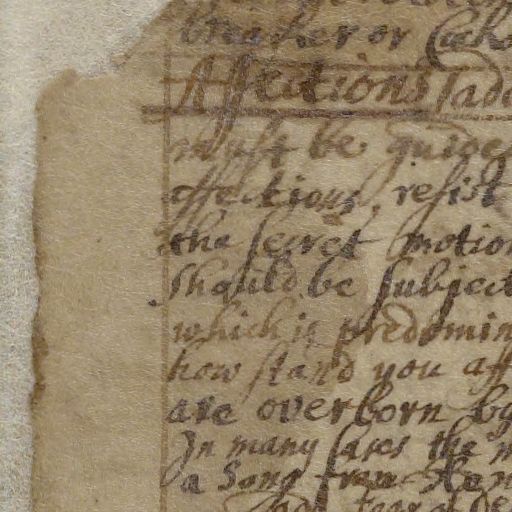 breaker or
Affections
must be guided
affections, resist
the secret motion
should be subject
which is predomin
how stand you aff
are overborn by
In many cases the
a Song from